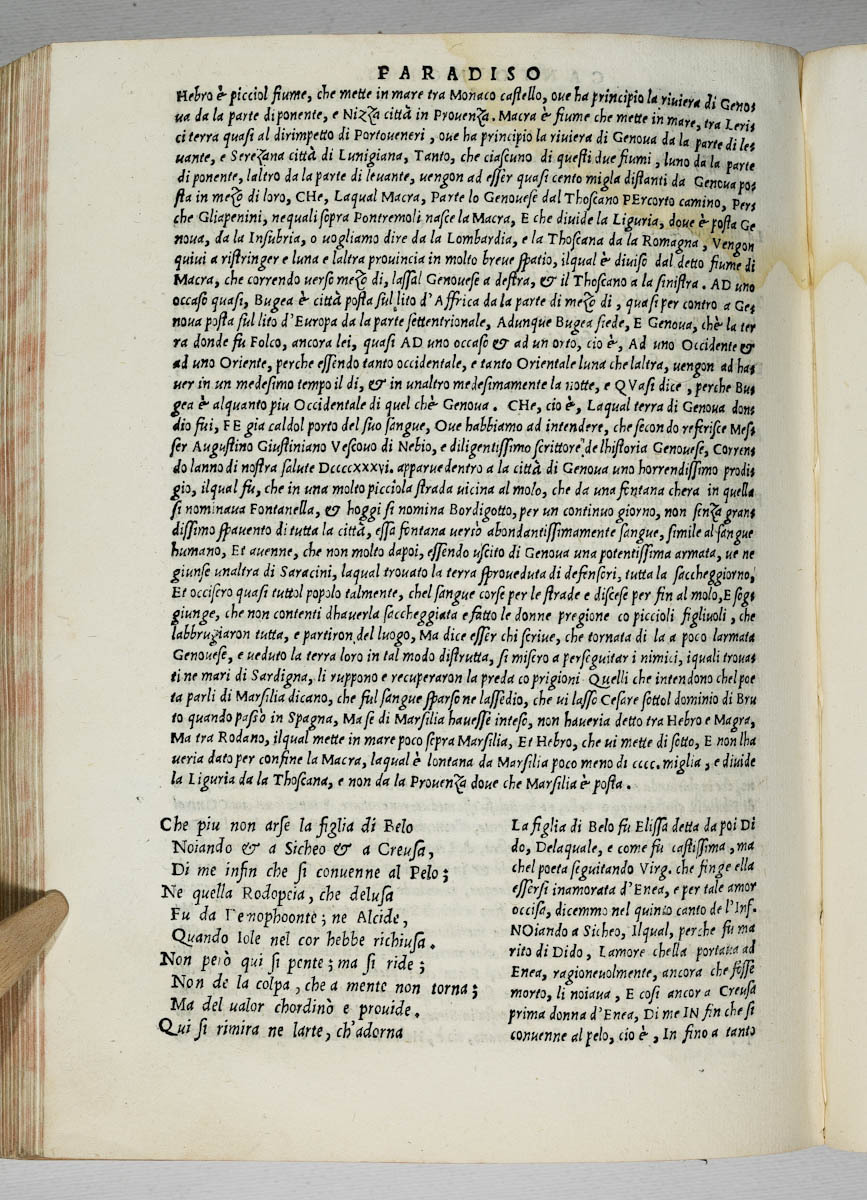 PARADISO
Hebro è picciol fiume, che mette in mare tra Monaco castello, oue ha principio la riuiera di Geno⸗
ua da la parte di ponente, e Nizza città in Prouenza. Macra è fiume che mette in mare, tra Leri⸗
ci terra quasi al dirimpetto di Portoueneri, oue ha principio la riuiera di Genoua da la parte di le⸗
uante, e Serezana città di Lunigiana, Tanto, che ciascuno di questi due fiumi, luno da la parte
di ponente, laltro da la parte di leuante, uengon ad esser quasi cento migla distanti da Genoua po⸗
sta in mezo di loro, CHe, Laqual Macra, Parte lo Genouese dal Thoscano PErcorto camino, Per⸗
che Gliapenini, nequali sopra Pontremoli nasce la Macra, E che diuide la Liguria, doue è posta Ge
noua, da la Insubria, o uogliamo dire da la Lombardia, e la Thoscana da la Romagna, Vengon
quiui a ristringer e luna e laltra prouincia in molto breue spatio, ilqual è diuiso dal detto fiume di
Macra, che correndo uerso mezo di, lassal Genouese a destra, & il Thoscano a la sinistra. AD uno
occaso quasi, Bugea è città posta sul lito d'Affrica da la parte di mezo di, quasi per contro a Ge⸗
noua posta sul lito d'Europa da la parte settentrionale, Adunque Bugea siede, E Genoua, chè la ter
ra donde fu Folco, ancora lei, quasi AD uno occaso & ad un orto, cio è, Ad uno Occidente &
ad uno Oriente, perche essendo tanto occidentale, e tanto Orientale luna che laltra, uengon ad ha⸗
uer in un medesimo tempo il di, & in unaltro medesimamente la notte, e QVasi dice, perche Bu⸗
gea è alquanto piu Occidentale di quel chè Genoua. CHe, cio è, Laqual terra di Genoua don⸗
dio fui, FE gia caldol porto del suo sangue, Oue habbiamo ad intendere, che secondo referisce Mes⸗
ser Augustino Giustiniano Vescouo di Nebio, e diligentissimo scrittore de lhistoria Genouese, Corren⸗
do lanno di nostra salute Dccccxxxvi. apparue dentro a la città di Genoua uno horrendissimo prodi⸗
gio, ilqual fu, che in una molto picciola strada uicina al molo, che da una fontana chera in quella
si nominaua Fontanella, & hoggi si nomina Bordigotto, per un continuo giorno, non senza gran⸗
dissimo spauento di tutta la città, essa fontana uersò abondantissimamente sangue, simile al sangue
humano, Et auenne, che non molto dapoi, essendo uscito di Genoua una potentissima armata, ue ne
giunse unaltra di Saracini, laqual trouato la terra sproueduta di defensori, tutta la saccheggiorno,
Et occisero quasi tuttol popolo talmente, chel sangue corse per le strade e discese per fin al molo, E sog⸗
giunge, che non contenti dhauerla saccheggiata e fatto le donne pregione co piccioli figliuoli, che
labbrugiaron tutta, e partiron del luogo, Ma dice esser chi scriue, che tornata di la a poco larmata
Genouese, e ueduto la terra loro in tal modo distrutta, si misero a perseguitar i nimici, iquali troua⸗
ti ne mari di Sardigna, li ruppono e recuperaron la preda co prigioni Quelli che intendono chel poe
ta parli di Marsilia dicano, che sul sangue sparso ne lassedio, che ui lasso Cesare sottol dominio di Bru
to quando passò in Spagna, Ma se di Marsilia hauesse inteso, non haueria detto tra Hebro e Magra,
Ma tra Rodano, ilqual mette in mare poco sopra Marsilia, Et Hebro, che ui mette di sotto, E non lha
ueria dato per confine la Macra, laqual è lontana da Marsilia poco meno di cccc. miglia, e diuide
la Liguria da la Thoscana, e non da la Prouenza doue che Marsilia è posta.
Che piu non arse la figlia di Belo
Noiando & a Sicheo & a Creusa,
Di me infin che si conuenne al Pelo;
Ne quella Rodopeia, che delusa
Fu da Demophoonte; ne Alcide,
Quando Iole nel cor hebbe richiusa.
Non però qui si pente; ma si ride;
Non de la colpa, che a mente non torna;
Ma del ualor chordinò e prouide.
Qui si rimira ne larte, ch'adorna
La figlia di Belo fu Elissa detta da poi Di
do, Delaquale, e come fu castissima, ma
chel poeta seguitando Virg. che finge ella
essersi inamorata d'Enea, e per tale amor
occisa, dicemmo nel quinto canto de l'Inf.
NOiando a Sicheo, Ilqual, perche fu ma
rito di Dido, Lamore chella portaua ad
Enea, ragioneuolmente, ancora che fosse
morto, li noiaua, E cosi ancor a Creusa
prima donna d'Enea, Di me IN fin che si
conuenne al pelo, cio è, In fino a tanto